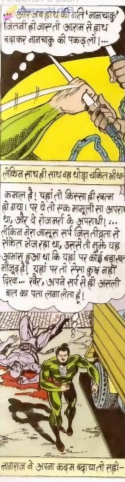 और जब हाथ की गति 'नानचाकू'
जितनी हो जाती आराम से हाथ
बढ़ाकर नानचाकू को पकड़ लो!...
लेकिन साथ ही साथ वह थोड़ा चकित भी था
कमाल है! यहां तो किस्सा ही खत्म
हो गया। पर ये तो एक मामूली सा अपराध
था, और ये रोजमर्रा के अपराधी!...
लेकिन मेरा जासूस सर्प जिस तीव्रता से
संकेत भेज रहा था, उससे तो मुझे यह
आभास हुआ था कि यहां पर कोई बड़ा खतरा
मौजूद है। यहां पर तो ऐसा कुछ नहीं
दिखा-- खैर, अपने सर्प से ही असली
बात का पता लगा लेता हूं!
नागराज ने अपना कदम बढ़ाया तो सही--